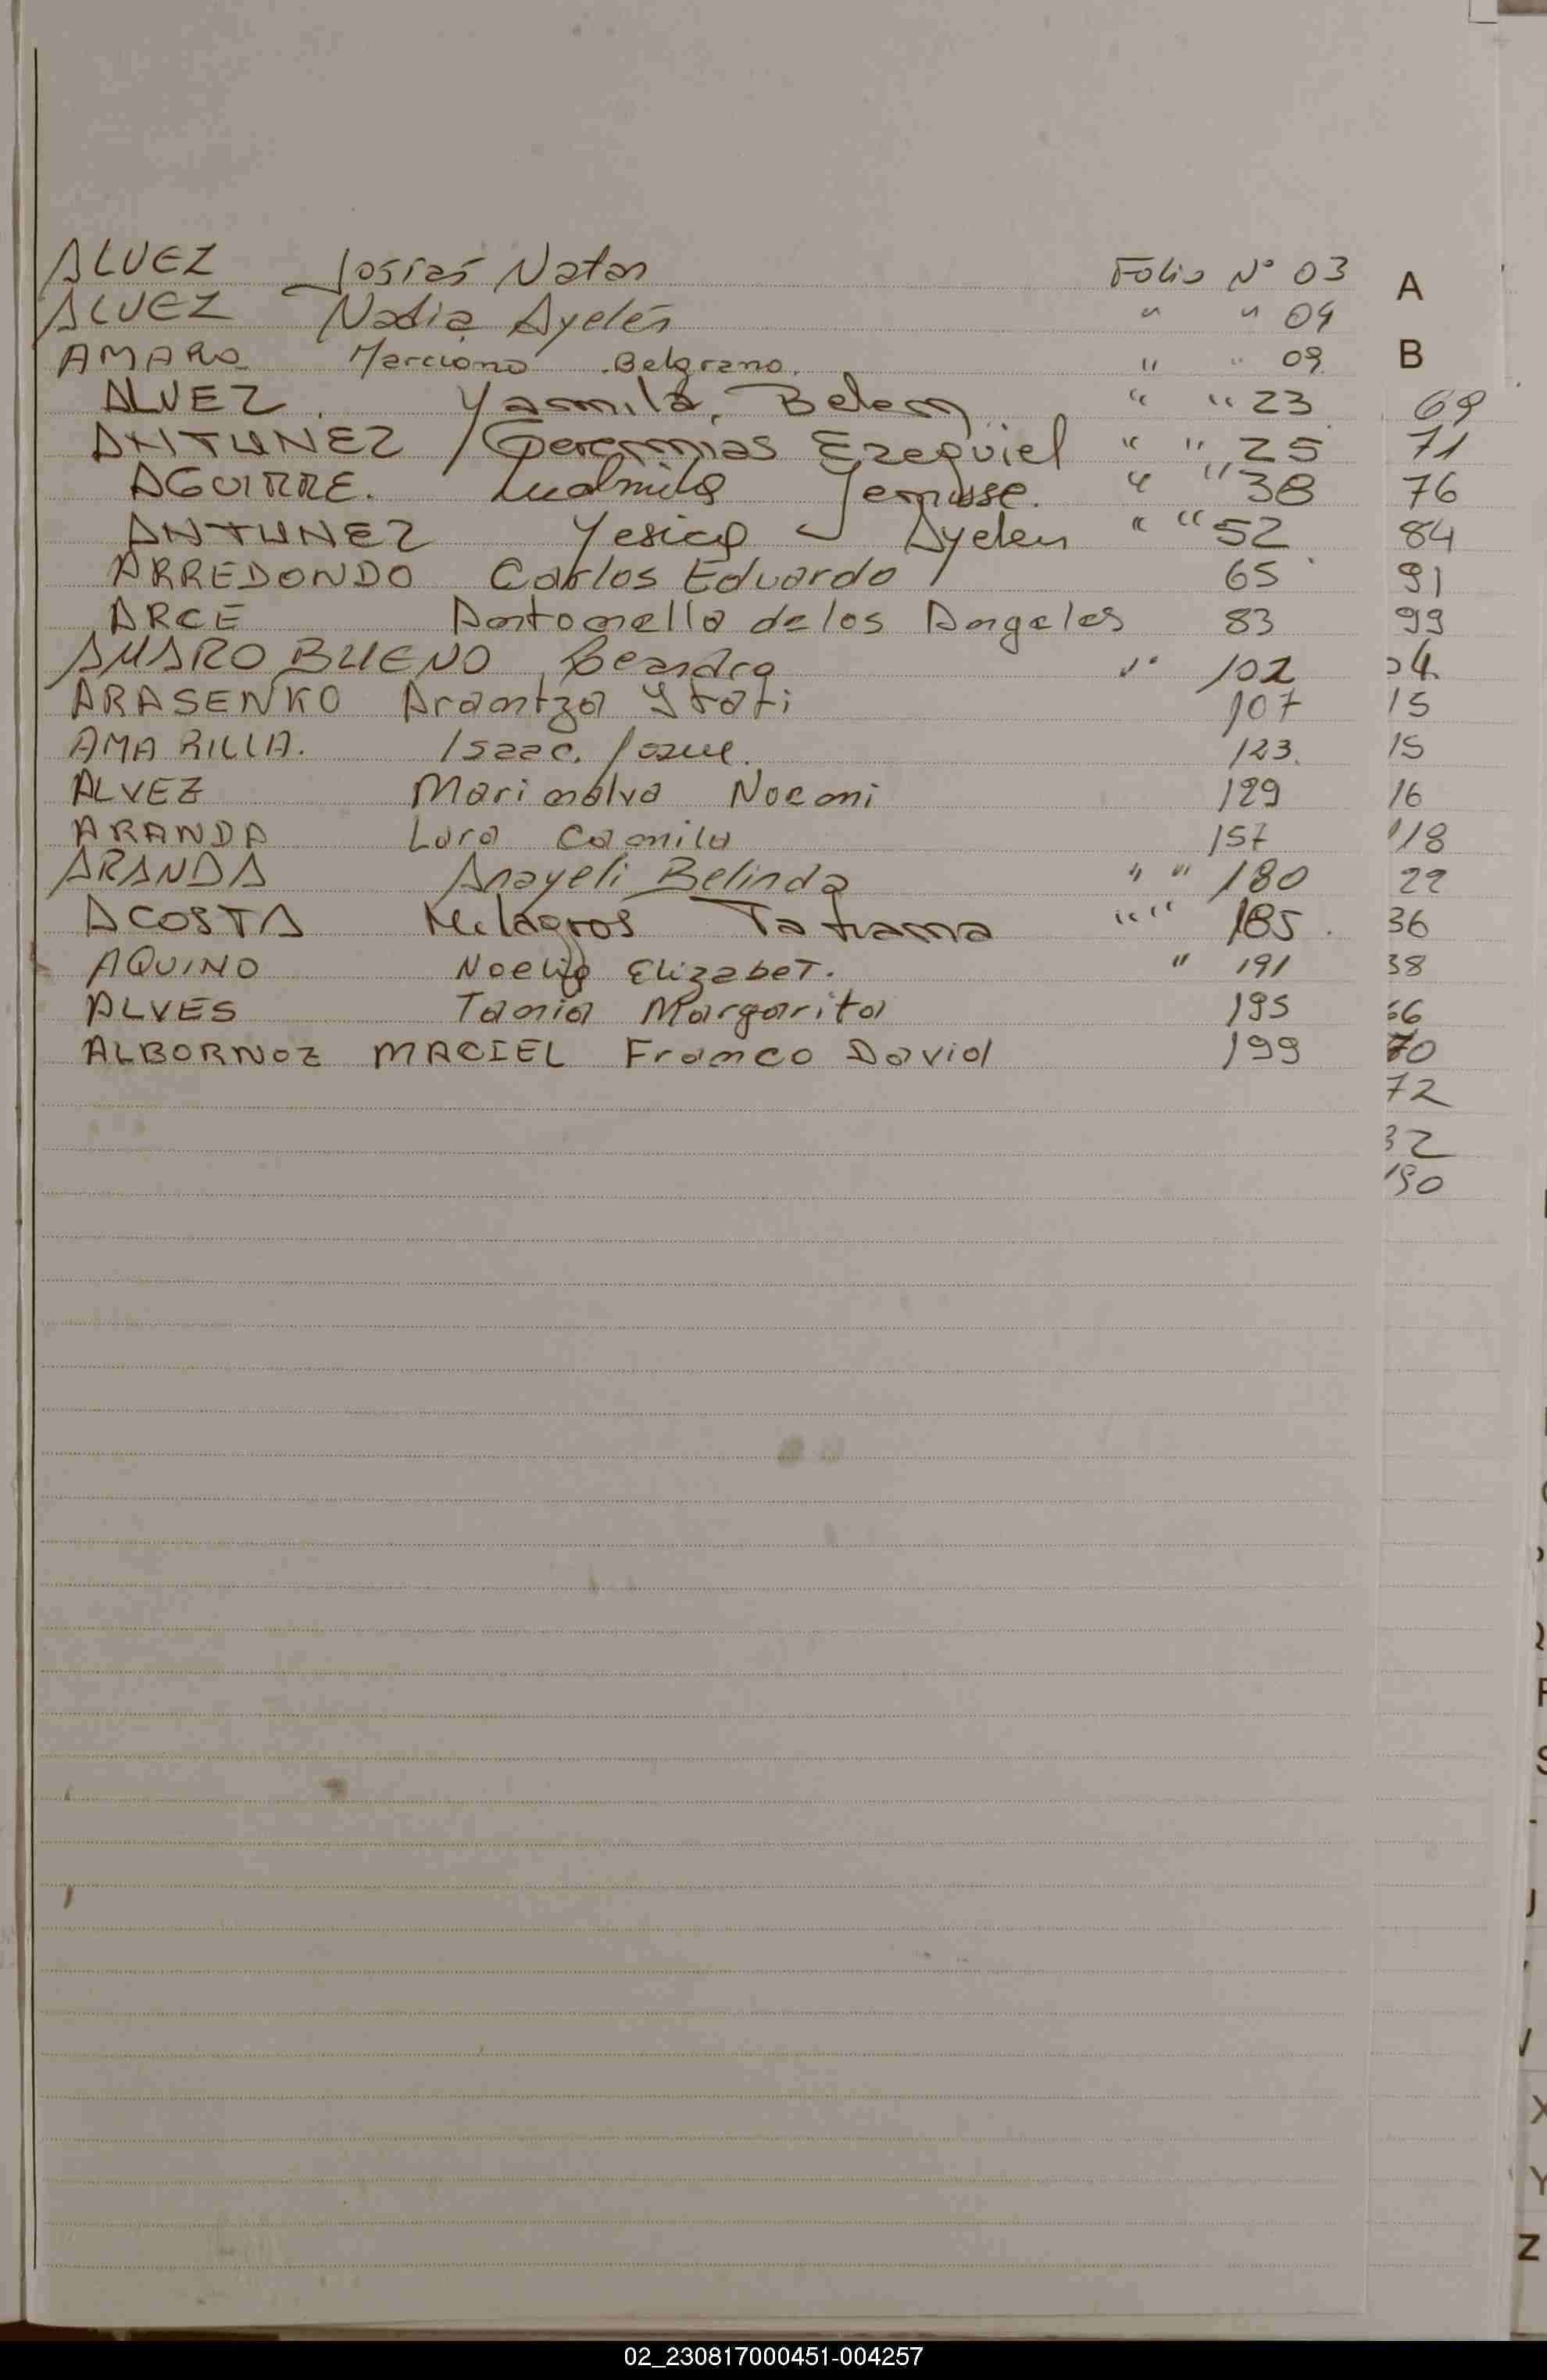 ALVEZ Josías Natan Folio N° 03 A
ALVEZ Nadia Ayelén " " 04
AMARO Marciano Belgrano. " " 09 B
ALVEZ. Yamila, Belem " " 23 69
ANTUNEZ Geremias Ezequiel " " 25 71
AGUIRRE. Ludmila " " 38 76
ANTUNEZ Yesica Ayelen " " 52 84
ARREDONDO Carlos Eduardo 65 91
ARCE Antonella de los Angeles 83 99
AMARO BUENO Leandra " 102 04
ARASENKO Arantza 107 15
AMARILLA. Isaac. Josue. 123. 15
ALVEZ Marinalva Noemi 129 16
ARANDA Lara Camila 157 118
ARANDA Anayeli Belinda " " 180 22
ACOSTA Milagros Tatiana " " 185. 36
AQUINO Noelia Elizabet. " 191 38
ALVES Tania Margarita 195 66
ALBORNOZ MACIEL Franco David 199 70
72
32
190
F
S
J
V
X
Y
Z
02_230817000451-004257